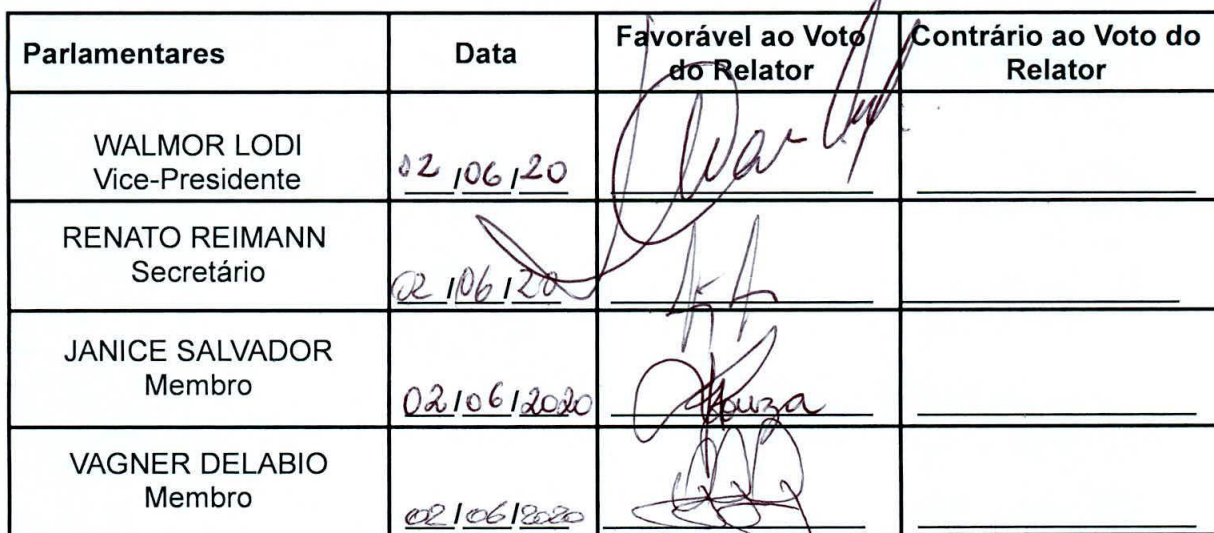 Parlamentares Data Favorável ao Voto Contrário ao Voto do
do Relator Relator
WALMOR LODI
Vice-Presidente 02/06/20
RENATO REIMANN
Secretário 02/06/20
JANICE SALVADOR
Membro 02/06/2020 Souza
VAGNER DELABIO
Membro 02/06/2020